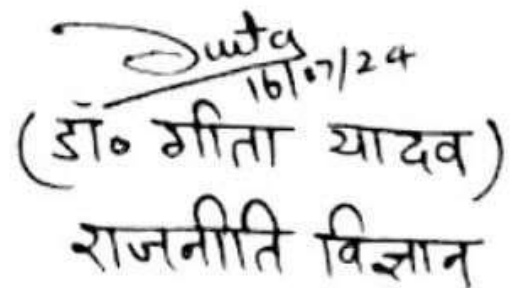 16/07/24
(डॉ० गीता यादव)
राजनीति विज्ञान